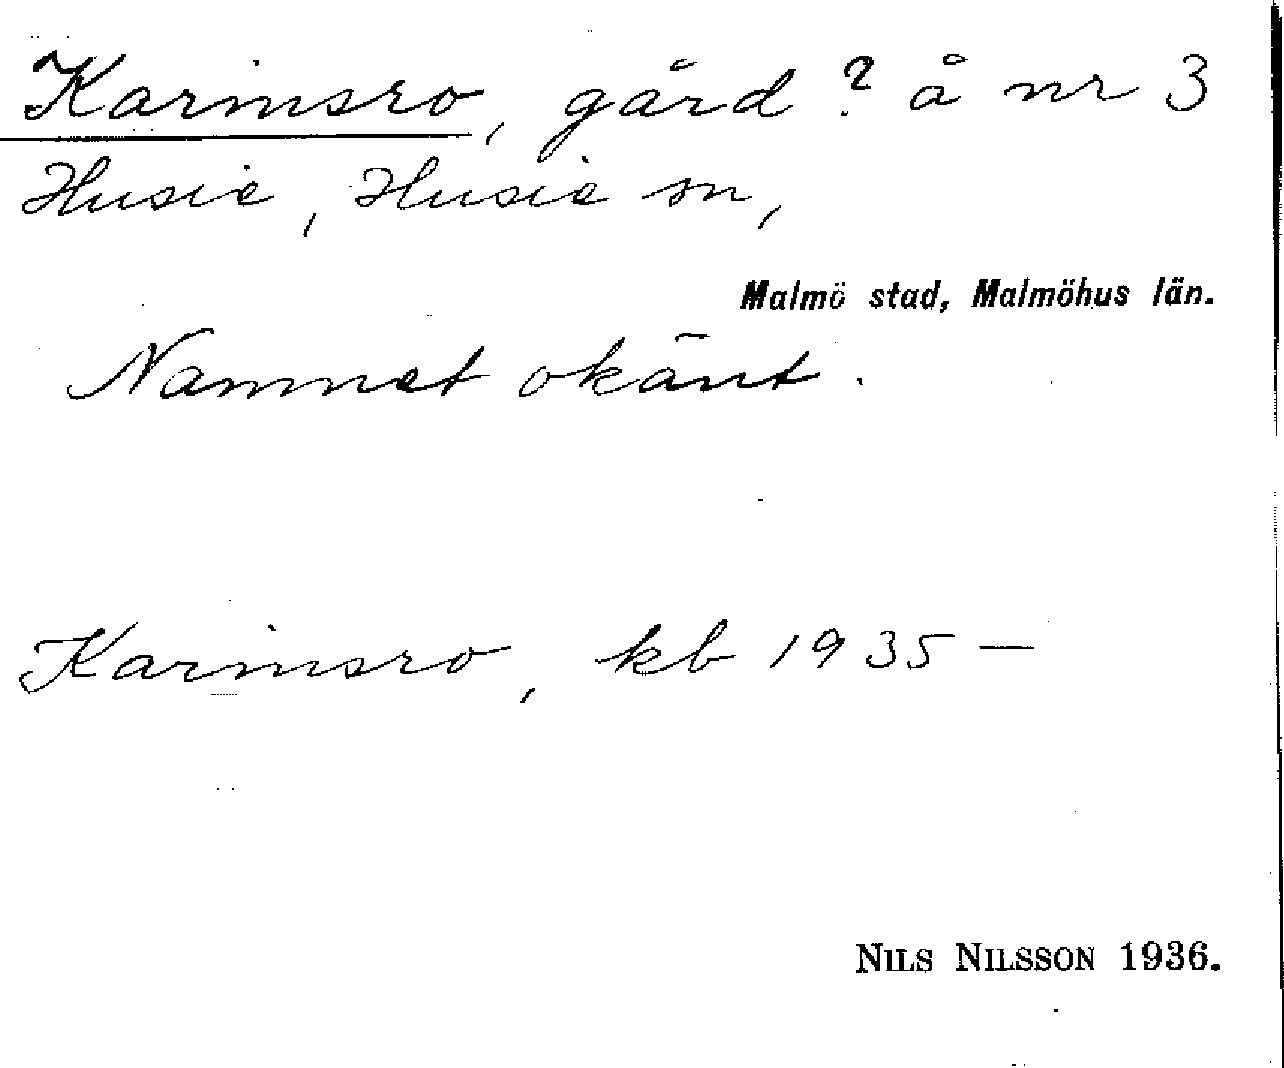 Karinsro, gård? å nr 3
Husie, Husie sn,
Malmö stad, Malmöhus län.
Namnet okänt.
Karinsro, kb 1935 —
NILS NILSSON 1936.